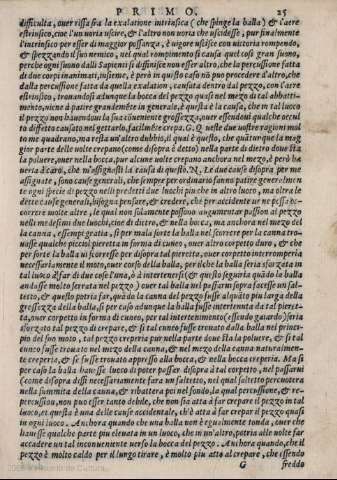 PRIMO. 25
difficulta, ouer rissa fra la exalatione intrinsica (che spinge la balla) & l'aere
estrinsico, cioe l'un uoria uscire, & l'altro non uoria che uscidesse, pur finalmente
l'intrinsico per esser di maggior possanza, è uigore uscisce con uittoria rompendo,
& spezzando il suo nemico, nel qual rompimento si causa quel cosi gran suono,
perche ogni suono dalli Sapienti si diffinisce non esser altro, che la percussione fatta
di duoi corpi inanimati, insieme, è però in questo caso nõ puo procedere d'altro, che
dalla percussione fatta da quella exalation, causata dentro dal pezzo, con l'aere
estrinsico, trouandosi adunque la bocca del pezzo quasi nel mezo di tal abbatti-
mento, uiene à patire grandemẽte in generale, è questa è la causa, che in tal luoco
il pezzo non hauendoui la sua cõueniente grossezza, ouer essendoui qualche occul
to diffetto causato nel gettarlo, facilmẽte crepa. G. Q ueste due uostre ragioni mol
to me quadrano, ma resta un'altro dubbio, il qual è questo, che quãtonque la mag
gior parte delle uolte crepano (come disopra è detto) nella parte di dietro doue sta
la poluere, ouer nella bocca, pur alcune uolte crepano anchora nel mezo, è però ha
ueria à caro, che m'assignasti la causa di questo. N. Le due cause disopra per me
assignate, sono cause generali, che sempre per ordinario fanno patire generalmen
te ogni specie di pezzo nelli predetti duoi luochi piu che in altro luoco, ma oltra le
dette cause generali, bisogna pensare, & credere, che per accidente ui ne possa oc-
correre molte altre, le quai non solamente possono augumentar passion al pezzo
nelli medesimi duoi luochi, cioe di dietro, & nella bocca, ma anchora nel mezo del
la canna, essempi gratia, si per mala sorte la balla nel scorrere per la canna tro-
uasse qualche piccol pietretta in forma di cuneo, ouer altro corpetto duro, & che
per sorte la balla ui scorresse pur disopra tal pietretta, ouer corpetto interromperia
necessariamente il moto, ouer corso della balla, per ilche la balla seria sforzata in
tal luoco à far di due cose l'una, ò intertenersi (& questo seguiria quãdo la balla
andasse molto serrata nel pezzo) ouer tal balla nel passarui sopra facesse un sal-
tetto, & questo potria far, quãdo la canna del pezzo fusse alquãto piu larga della
grossezza della balla, si per caso adunque la balla fusse intertenuta da tal pietret
ta, ouer corpetto in forma di cuneo, per tal intertenimento (essendo gaiardo) seria
sforzato tal pezzo di crepare, & si tal cuneo fusse trouato dalla balla nel princi-
pio del suo moto, tal pezzo creperia pur nella parte doue sta la poluere, & si tal
cuneo fusse trouato nel mezo della canna, & nel mezo della canna naturalmen-
te creperia, & se fusse trouato appresso alla bocca, & nella bocca creperia. Ma si
per caso la balla hauesse luoco di poter passar disopra à tal corpetto, nel passarui
(come disopra dissi) necessariamente faria un saltetto, nel qual saltetto percuotera
nella summita della canna, & ribattera poi nel fondo, la qual percussione, & re-
percussion, non puo esser tanto debile, che non sia atta à far crepare il pezzo in tal
luoco, et questa è una delle cause accidentale, ch'è atta à far crepar il pezzo quasi
in ogni luoco. Anchora quando che una balla non è egualmente tonda, ouer che
hauesse qualche parte piu eleuata in un luoco, che in un'altro, potria alle uolte far
accadere un tal inconueniente uerso la bocca del pezzo. Anchora quando, che il
pezzo è molto caldo per il longo tirare, è molto piu atto al crepare, che essendo
G freddo